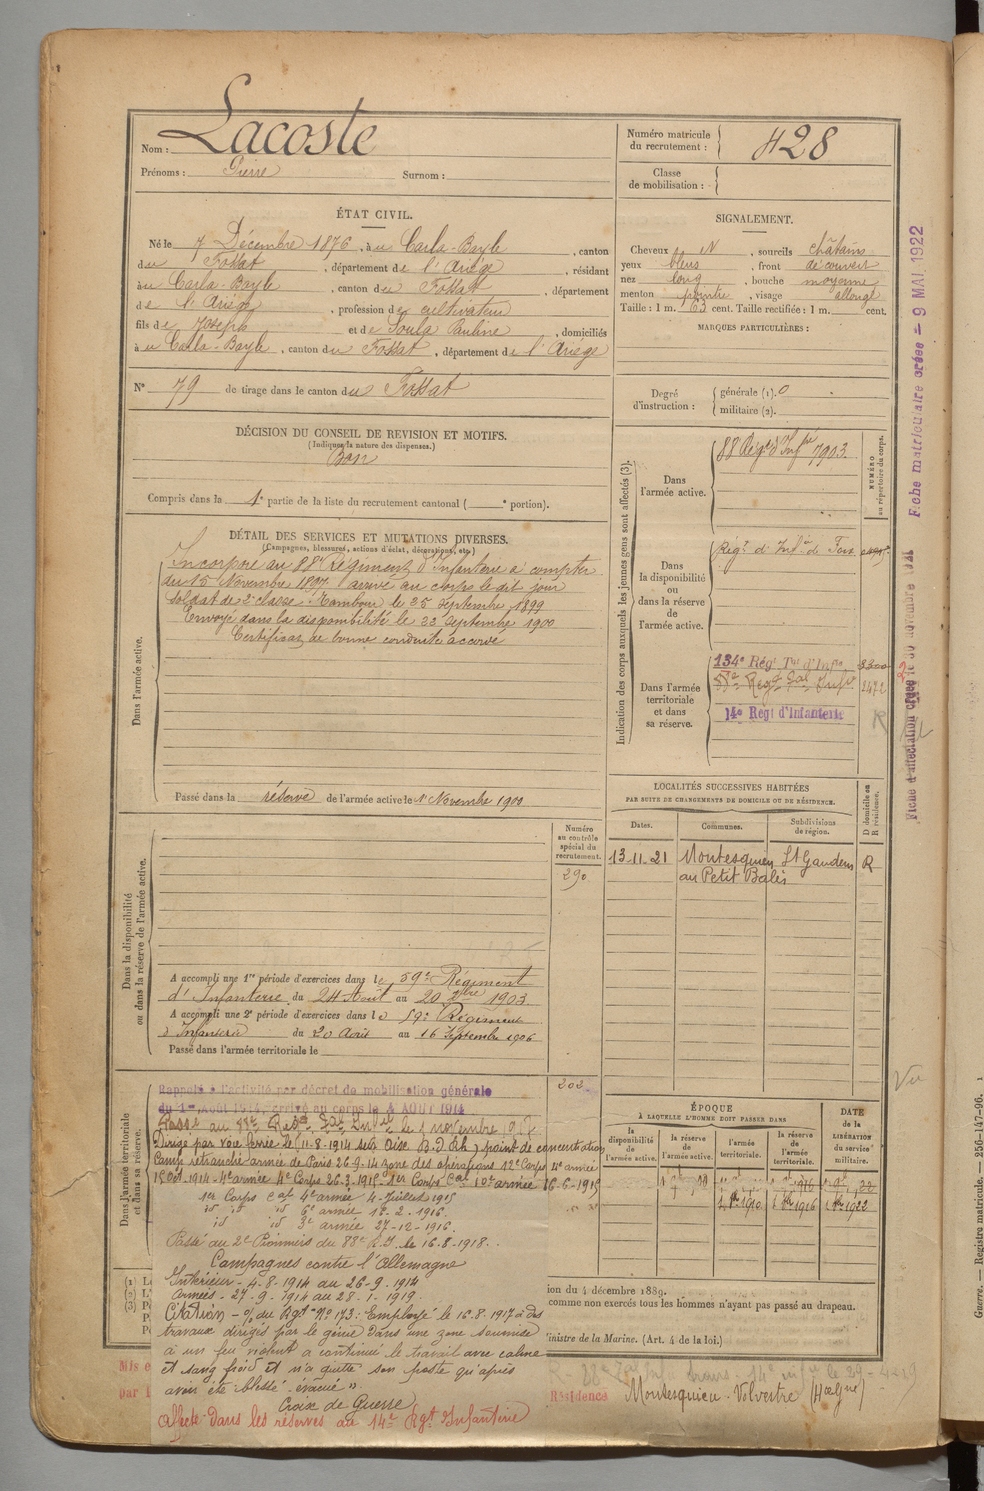 Lacoste
Nom :
Prénoms : Pierre Surnom :
Numéro matricule du recrutement : 428
Classe de mobilisation :
ÉTAT CIVIL.
Né le 7 Décembre 1876, à u Carla-Bayle, canton
du Fossat, département de l'Ariège, résidant
à u Carla-Bayle, canton du Fossat, département
de l'Ariège, profession de cultivateur
fils de Joseph et de Soula Pauline, domiciliés
à u Carla-Bayle, canton du Fossat, département de l'Ariège
N° 79 de tirage dans le canton du Fossat
SIGNALEMENT.
Cheveux N, sourcils châtain
yeux bleus, front découvert
nez long, bouche moyenne
menton pointu, visage allongé
Taille : 1 m. 63 cent. Taille rectifiée : 1 m. cent.
MARQUES PARTICULIÈRES :
Degré d'instruction : générale (1). 0
militaire (2).
DÉCISION DU CONSEIL DE REVISION ET MOTIFS.
(Indiquer la nature des dispenses.)
Bon
Compris dans la 1e partie de la liste du recrutement cantonal ( e portion).
DÉTAIL DES SERVICES ET MUTATIONS DIVERSES.
(Campagnes, blessures, actions d'éclat, décorations, etc.)
Dans l'armée active.
Incorporé au 88e Régiment d'Infanterie à compter
du 15 Novembre 1897 arrivé au corps le dit jour
soldat de 2e classe. Tambour le 25 Septembre 1899
Envoyé dans la disponibilité le 22 Septembre 1900
Certificat de bonne conduite accordé
Passé dans la réserve de l'armée active le 1er Novembre 1900
Indication des corps auxquels les jeunes gens sont affectés (3).
NUMÉRO au répertoire du corps.
Dans l'armée active.
88 Régt d'Infrie 7903
Dans la disponibilité ou dans la réserve de l'armée active.
Régt d'Infie de
Dans l'armée territoriale et dans sa réserve.
134e Régt Tal d'Infie
2472
14e Régt d'Infanterie
R
Fiche matriculaire créée = 9 MAI 1922
LOCALITÉS SUCCESSIVES HABITÉES
PAR SUITE DE CHANGEMENTS DE DOMICILE OU DE RÉSIDENCE.
Dates. Communes. Subdivisions de région. D domicile ou R résidence.
13-11-21 Montesquieu St Gaudens R
au Petit Balès
Numéro au contrôle spécial du recrutement.
290
Dans la disponibilité ou dans la réserve de l'armée active.
A accompli une 1re période d'exercices dans le 59e Régiment
d'Infanterie du 24 Août au 20 7bre 1903
A accompli une 2e période d'exercices dans le 59e Régiment
d'Infanterie du 20 Août au 16 Septembre 1906
Passé dans l'armée territoriale le
202
Vu
Dans l'armée territoriale et dans sa réserve.
Rappelé à l'activité par décret de mobilisation générale
du 1er Août 1914, arrivé au corps le 4 AOUT 1914
Passé au 88e Regt Tal Infie le 1 novembre
Dirigé par voie ferrée le 11-8-1914 point de concentration
Camp retranché armée de Paris 26-9-14 Zone des opérations 12e Corps 4e armée
15 Oct. 1914 - 4e armée 4e Corps 26-3-1915 - 1er Corps Cal 10e armée 16-6-1915
1er Corps Cal 4e armée 4 Juillet 1915
id id id 6e armée 17-2-1916
id id 3e armée 27-12-1916
Passé au 2e Pionniers du 88e R.I. le 16-8-1918.
Campagnes contre l'Allemagne
Intérieur - 4-8-1914 au 26-9-1914
Armées - 27-9-1914 au 28-1-1919
Citation - o/ du Rgt N° 173 : Employé le 16-8-1917 à des
travaux dirigés par le génie dans une zone soumise
à un feu violent a continué le travail avec calme
et sang froid et n'a quitté son poste qu'après
avoir été blessé évacué "
Croix de Guerre
Affecté dans les réserves au 14e Rgt Infanterie
ÉPOQUE
À LAQUELLE L'HOMME DOIT PASSER DANS
la disponibilité de l'armée active. la réserve de l'armée active. l'armée territoriale. la réserve de l'armée territoriale.
DATE de la LIBÉRATION du service militaire.
1 8bre 1910 1 8bre 1916 1 8bre 1922
ion du 4 décembre 1889.
comme non exercés tous les hommes n'ayant pas passé au drapeau.
inistre de la Marine. (Art. 4 de la loi.)
Mis e
par l
Résidence Montesquieu-Volvestre (Hte Gne)
Guerre. — Registre matricule. — 256-147-96.